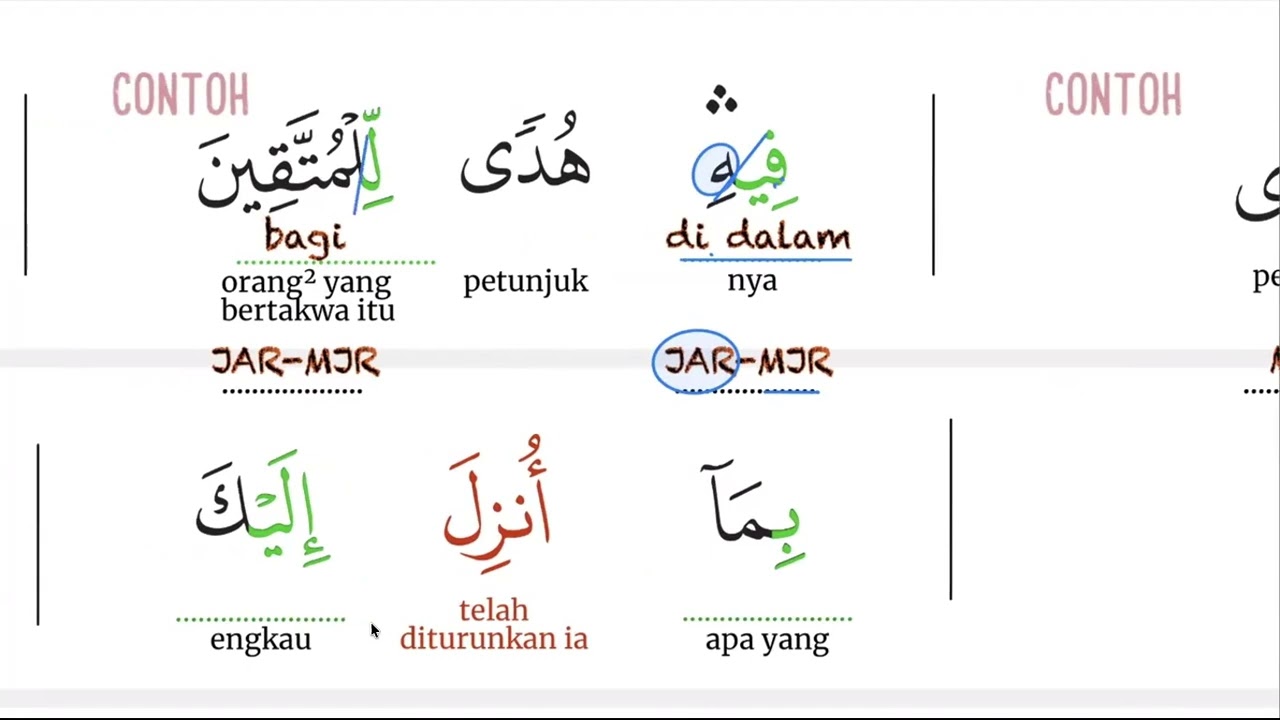 CONTOH
CONTOH
فِيهِ ۛ هُدًى لِّلْمُتَّقِينَ
di dalam
bagi
nya
petunjuk
orang² yang
bertakwa itu
pe
JAR-MJR
JAR-MJR
بِمَآ أُنزِلَ إِلَيْكَ
apa yang
telah
diturunkan ia
engkau